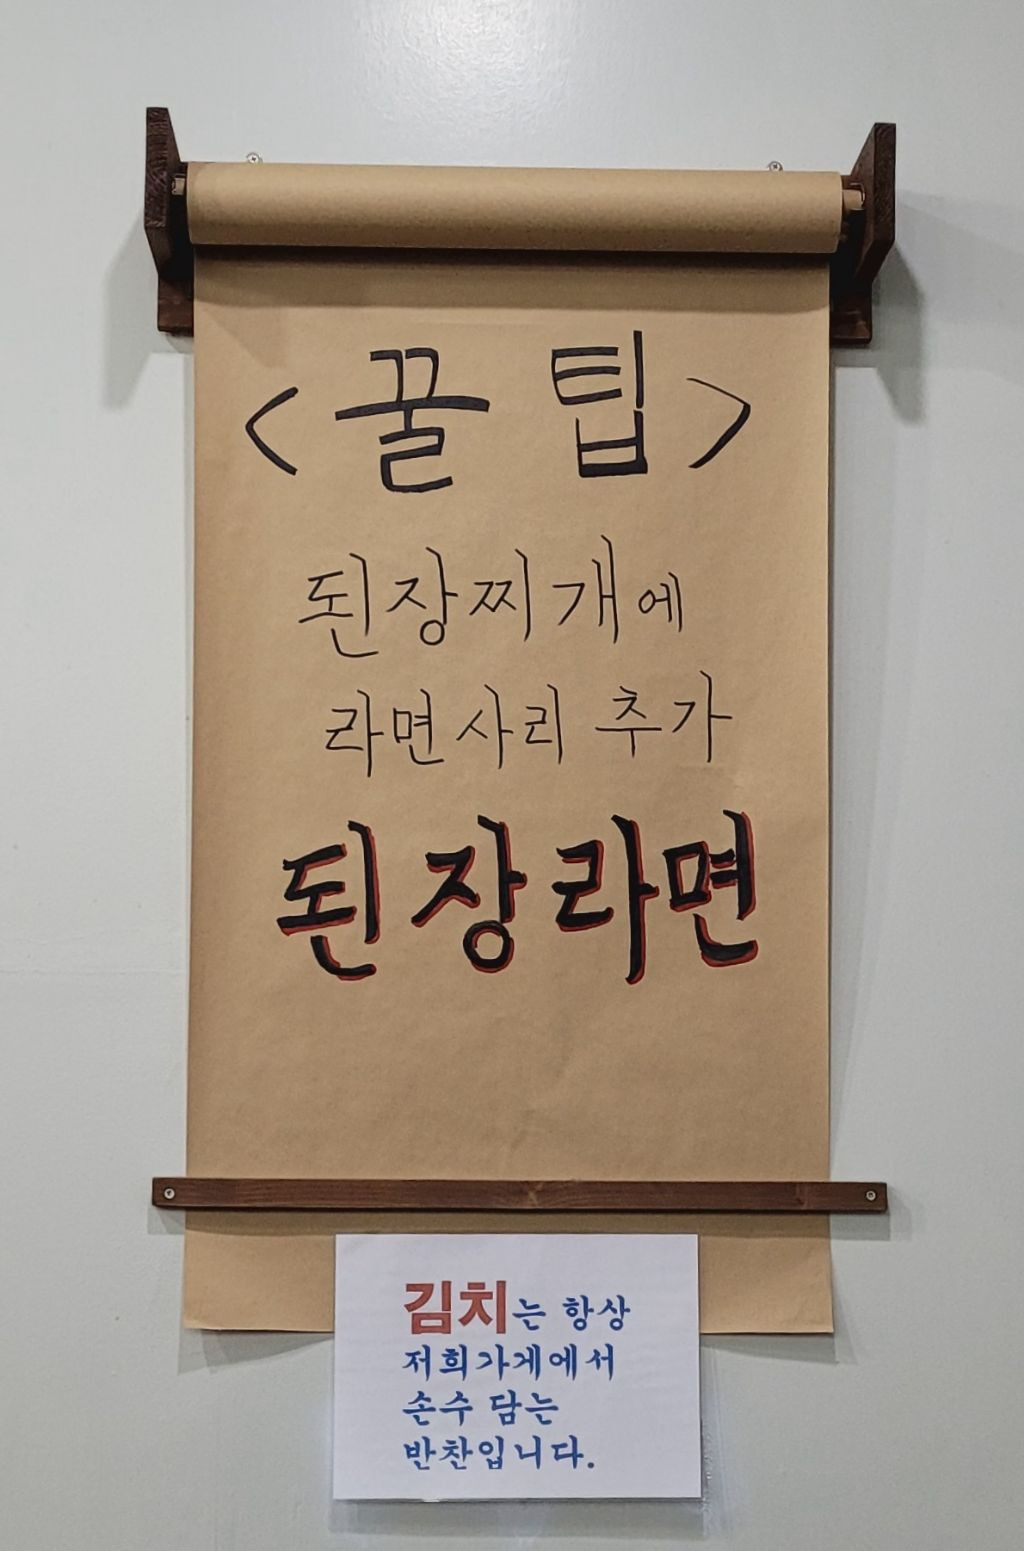 <꿀 팁>
된장찌개에
라면사리 추가
된장라면
김치는 항상
저희가게에서
손수 담는
반찬입니다.